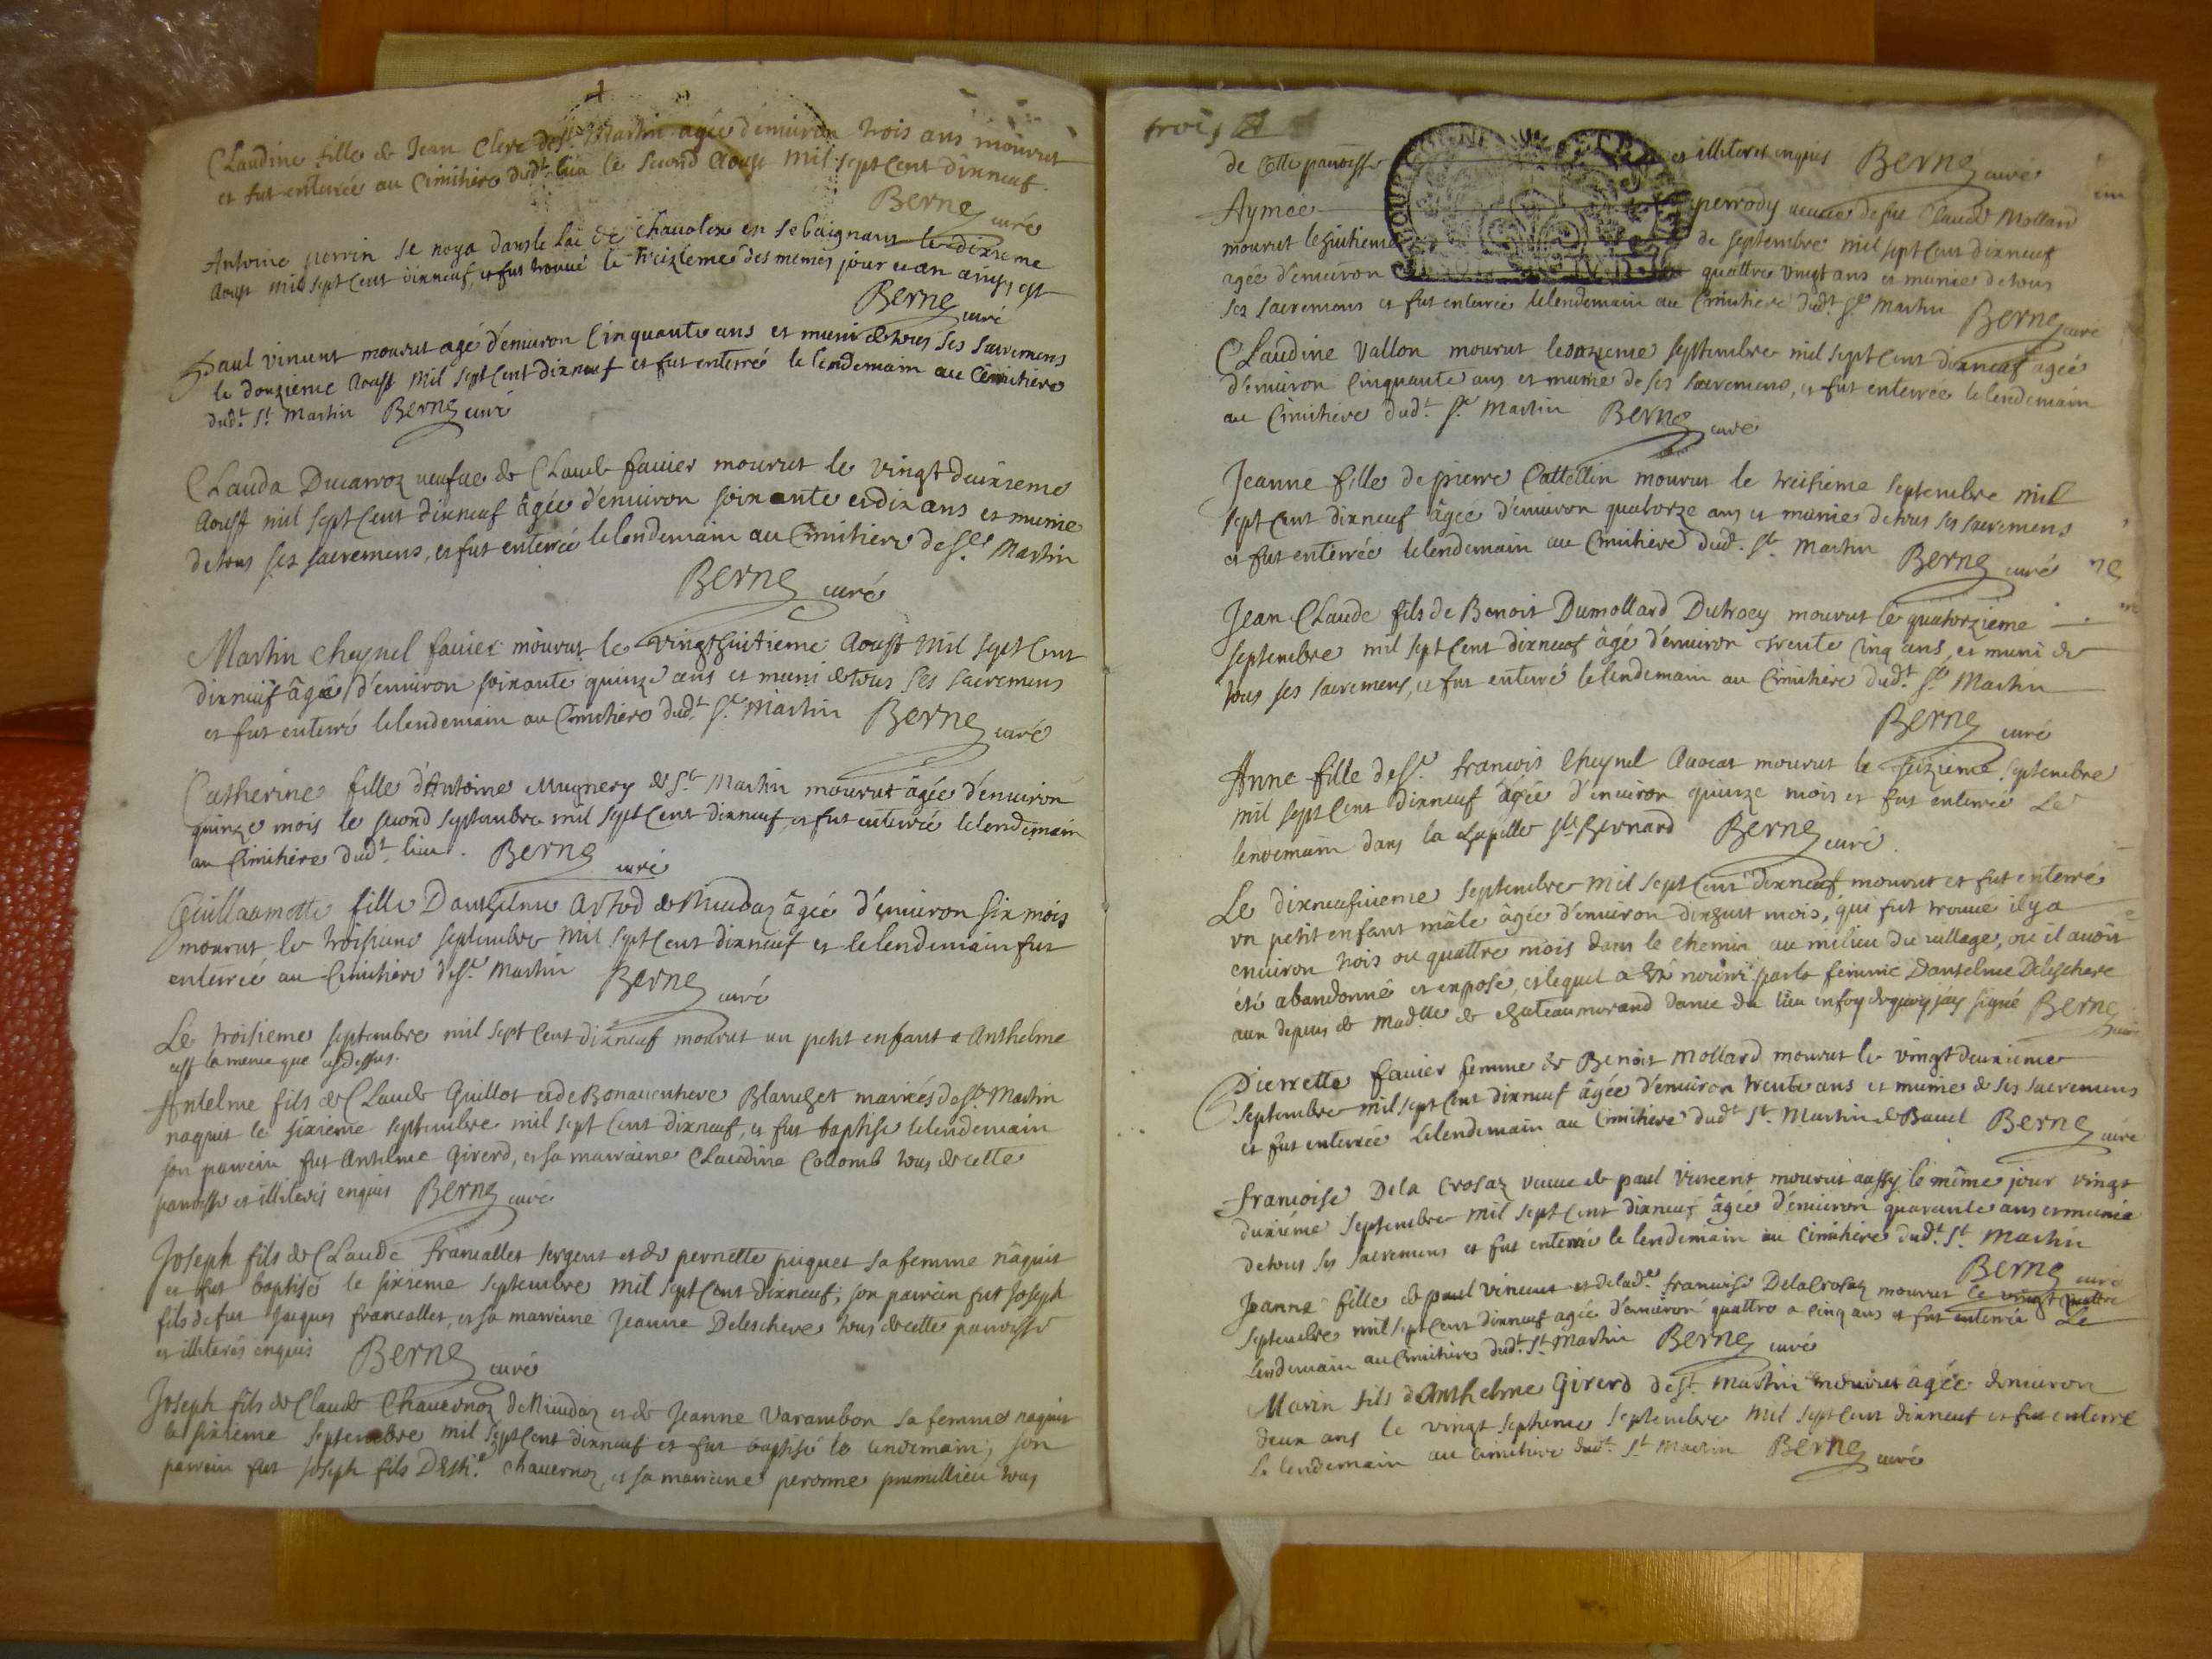 Claudine fille de Jean Clerc de St Martin agée d'environ trois ans mourut
et fut enterrée au Cimitiere dudt lieu le second Aoust mil sept Cent dixneuf.
Berne curé
Antoine perrin se noya dans le Lac de Chavolex en se baignant le dixieme
Aoust mil sept Cent dixneuf, et fut trouvé le treizieme des memes jour et an
Berne curé
Paul vincent mourut agé d'environ Cinquante ans et muni de tous ses sacremens
le douzieme Aoust mil sept Cent dixneuf et fut enterré le lendemain au Cimitiere
dudt. St. Martin Berne curé
Clauda Ducarroz veufue de Claude favier mourut le vingt deuxieme
Aoust mil sept Cent dixneuf âgée d'environ soixante et dix ans et munie
de tous ses sacremens, et fut enterrée le lendemain au Cimitiere de St. Martin
Berne curé
Martin Cheynel favier mourut le vingthuitieme Aoust mil sept Cent
dixneuf âgé d'environ soixante quinze ans et muni de tous ses sacremens
et fut enterré le lendemain au Cimitiere dudt. St. Martin Berne curé
Catherine fille d'Antoine Mugnery de St. Martin mourut âgée d'environ
quinze mois le second septembre mil sept Cent dixneuf, et fut enterrée le lendemain
au Cimitiere dudt. lieu. Berne curé
Guillaumette fille Danthelme Artod de âgée d'environ six mois
mourut le troisieme septembre mil sept Cent dixneuf et le lendemain fut
enterrée au Cimitiere de St. Martin Berne curé
Le troisieme septembre mil sept Cent dixneuf mourut un petit enfant a Anthelme
est la meme que cydessus.
Antelme fils de Claude Guillot et de Bonaventure Blanchet mariés de St. Martin
naquit le sixieme septembre mil sept Cent dixneuf, et fut baptisé le lendemain
son parrain fut Antelme Girerd, et sa marraine Claudine Collomb tous de cette
paroisse et illiterés enquis Berne curé
Joseph fils de Claude francallet sergent et de pernette piquet sa femme naquit
et fut baptisé le sixieme septembre mil sept Cent dixneuf; son parrain fut Joseph
fils de feu Jacques francallet, et sa marraine Jeanne Deleschere tous de cette paroisse
et illiterés enquis Berne curé
Joseph fils de Claude Chavernoz de et de Jeanne Varambon sa femme naquit
le sixieme septembre mil sept Cent dixneuf et fut baptisé le lendemain; son
parrain fut Joseph fils chavernoz, et sa marraine peronne tous
trois
de cette paroisse et illiterés enquis Berne curé
Aymee perrody veuve de feu Claude Mollard
mourut le huitieme de septembre mil sept Cent dixneuf
agée d'environ quattre vingt ans et munie de tous
ses sacremens et fut enterrée le lendemain au Cimitiere dudt. St. Martin Berne curé
Claudine Vallon mourut le onzieme septembre mil sept Cent dixneuf agée
d'environ Cinquante ans et munie de ses sacremens, et fut enterrée le lendemain
au Cimitiere dudt. St. Martin Berne curé
Jeanne fille de pierre Cattellin mourut le treisieme septembre mil
sept Cent dixneuf âgée d'environ quatorze ans et munie de tous ses sacremens
et fut enterrée le lendemain au Cimitiere dudt. St. Martin Berne curé
Jean Claude fils de Benoit Dumollard Dutrocy mourut le quatorzieme
septembre mil sept Cent dixneuf âgé d'environ trente Cinq ans, et muni de
tous ses sacremens, et fut enterré le lendemain au Cimitiere dudt. St. Martin
Berne curé
Anne fille de Sr. francois Cheynel Avocat mourut le seizieme septembre
mil sept Cent dixneuf âgée d'environ quinze mois et fut enterrée Le
lendemain dans la Chapelle St. Bernard Berne curé.
Le dixneufvieme septembre mil sept Cent dixneuf mourut et fut enterré
vn petit enfant mâle âgée d'environ dixhuit mois, qui fut trouvé il y a
environ trois ou quattre mois dans le chemin au milieu du village, ou il avoit
été abandonné et exposé, et lequel a été nourri par la femme Dantelme Deleschere
aux depens de Madelle de chateaumorand dame du lieu en foy dequoy jay signé Berne curé
Pierrette favier femme de Benoit mollard mourut le vingt deuxieme
septembre mil sept Cent dixneuf âgée d'environ trente ans et munie de ses sacremens
et fut enterrée Le lendemain au Cimitiere dudt St. Martin de Bavel Berne curé
francoise Dela Crosaz vueue de paul Vincent mourut aussy le même jour vingt
deuxiéme septembre mil sept Cent dixneuf âgée d'environ quarante ans et munie
de tous ses sacremens et fut enterrée le lendemain au Cimitiere dudt. St. Martin
Berne curé
Jeanne fille de paul vincent et de lade. francoise Delacrosaz mourut le vingt quattre
septembre mil sept Cent dixneuf agée d'environ quattre a cinq ans et fut enterrée Le
lendemain au Cimitiere dudt. St. Martin Berne curé
Marin fils d'Anthelme Girerd de St. Martin mourut âgée denviron
deux ans le vingt septieme septembre mil sept Cent dixneuf et fut enterré
le lendemain au Cimitiere dudt. St Martin Berne curé